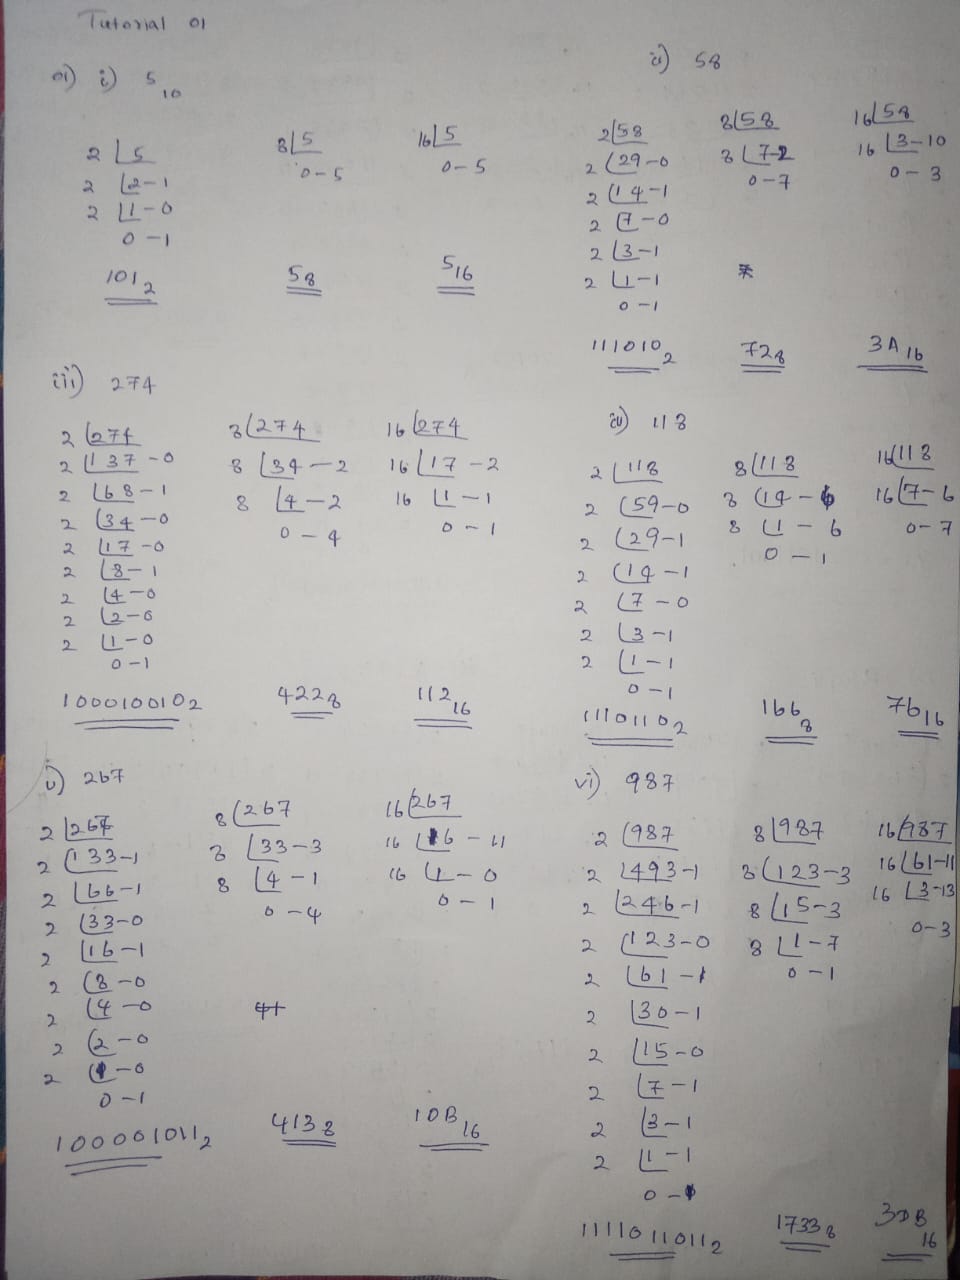 Tutorial 01
01) i) 5₁₀
2 5
2 2-1
2 1-0
0-1
101₂
8 5
0-5
5₈
16 5
0-5
5₁₆
ii) 58
2 58
2 29-0
2 14-1
2 7-0
2 3-1
2 1-1
0-1
111010₂
8 58
8 7-2
0-7
72₈
16 58
16 3-10
0-3
3A₁₆
iii) 274
2 274
2 137-0
2 68-1
2 34-0
2 17-0
2 8-1
2 4-0
2 2-0
2 1-0
0-1
100010010₂
8 274
8 34-2
8 4-2
0-4
422₈
16 274
16 17-2
16 1-1
0-1
112₁₆
iv) 118
2 118
2 59-0
2 29-1
2 14-1
2 7-0
2 3-1
2 1-1
0-1
1110110₂
8 118
8 14-6
8 1-6
0-1
166₈
16 118
16 7-6
0-7
76₁₆
v) 267
2 267
2 133-1
2 66-1
2 33-0
2 16-1
2 8-0
2 4-0
2 2-0
2 1-0
0-1
100001011₂
8 267
8 33-3
8 4-1
0-4
413₈
16 267
16 16-11
16 1-0
0-1
10B₁₆
vi) 987
2 987
2 493-1
2 246-1
2 123-0
2 61-1
2 30-1
2 15-0
2 7-1
2 3-1
2 1-1
0-1
1111011011₂
8 987
8 123-3
8 15-3
8 1-7
0-1
1733₈
16 987
16 61-11
16 3-13
0-3
3DB₁₆